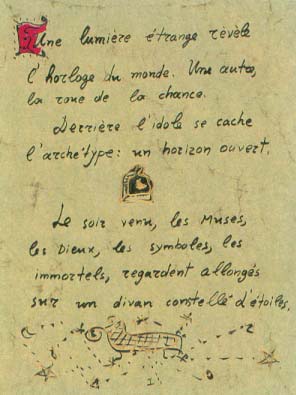 Une lumière étrange révèle
l'horloge du monde. Une autre,
la roue de la chance.
Derrière l'idole se cache
l'archétype : un horizon ouvert.
Le soir venu, les Muses,
les Dieux, les symboles, les
immortels, regardent allongés
sur un divan constellé d'étoiles.
1